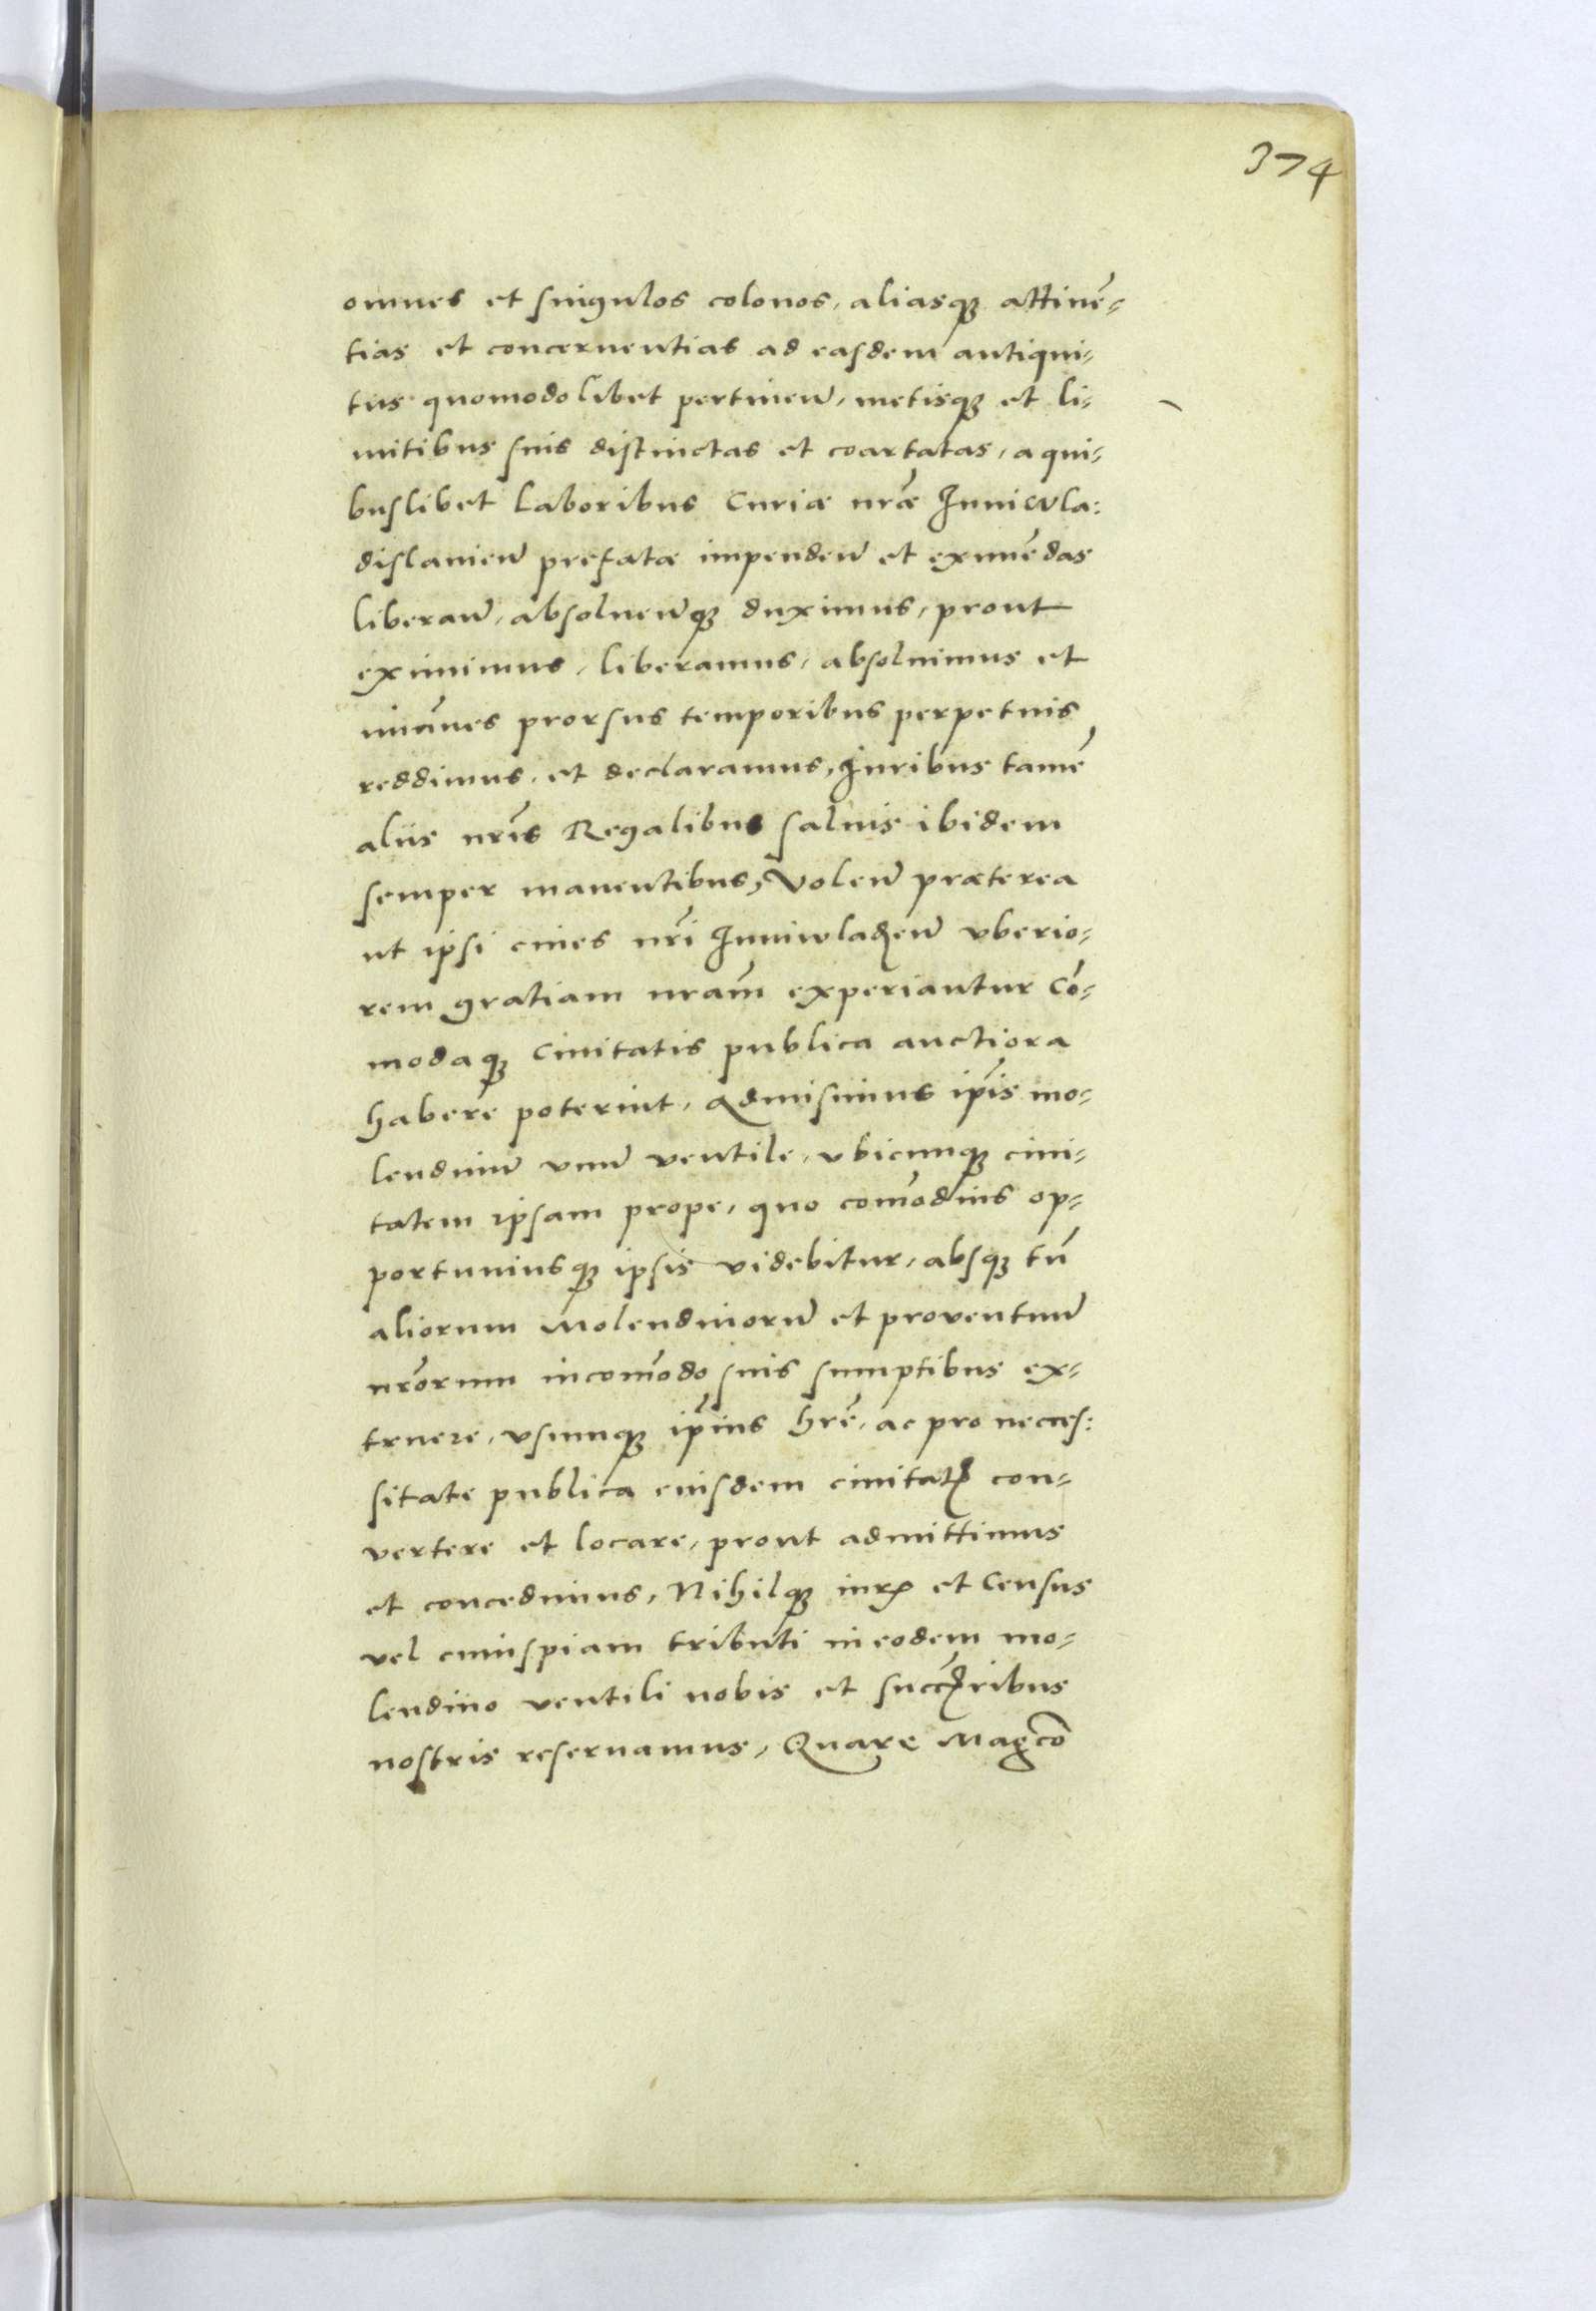 374
omnes et singulos colonos, aliasq3 attinē-
tias et concernentias ad easdem antiqui-
tus quomodolibet pertinen̄, metisq3 et li-
mitibus suis distinctas et coartatas, a qui-
buslibet laboribus Curiæ nr̄æ Iuniwla:
dislavien̄ prefatæ impenden̄ et eximēdas
liberan̄, absoluen̄q3 duximus, prout
eximimus, liberamus, absoluimus et
im̄unes prorsus temporibus perpetuis
reddimus, et declaramus, Iuribus tamē
aliis nr̄is Regalibus saluis ibidem
semper manentibus, Volen̄ præterea
ut ipsi ciues nr̄i Iuniwladen̄ vberio-
rem gratiam nram̄ experiantur Cō-
modaq3 Ciuitatis publica auctiora
habere poterint, admisimus ip̄is mo-
lendinū vnū ventile, vbicunq3 ciui-
tatem ipsam prope, quo com̄odius op-
portuniusq3 ipsis videbitur, absq3 tn̄
aliorum Molendinorū et proventuū
nr̄orum incom̄odo suis sumptibus ex-
truere, vsumq3 ip̄ius hr̄e, ac pro necces:
sitate publica eiusdem ciuitatꝭ con-
vertere et locare, prout admittimus
et concedimus, Nihilq3 iurꝭ et Census
vel cuiuspiam tributi in eodem mo-
lendino ventili nobis et succꝭribus
nostris reseruamus, Quare Mag̃co